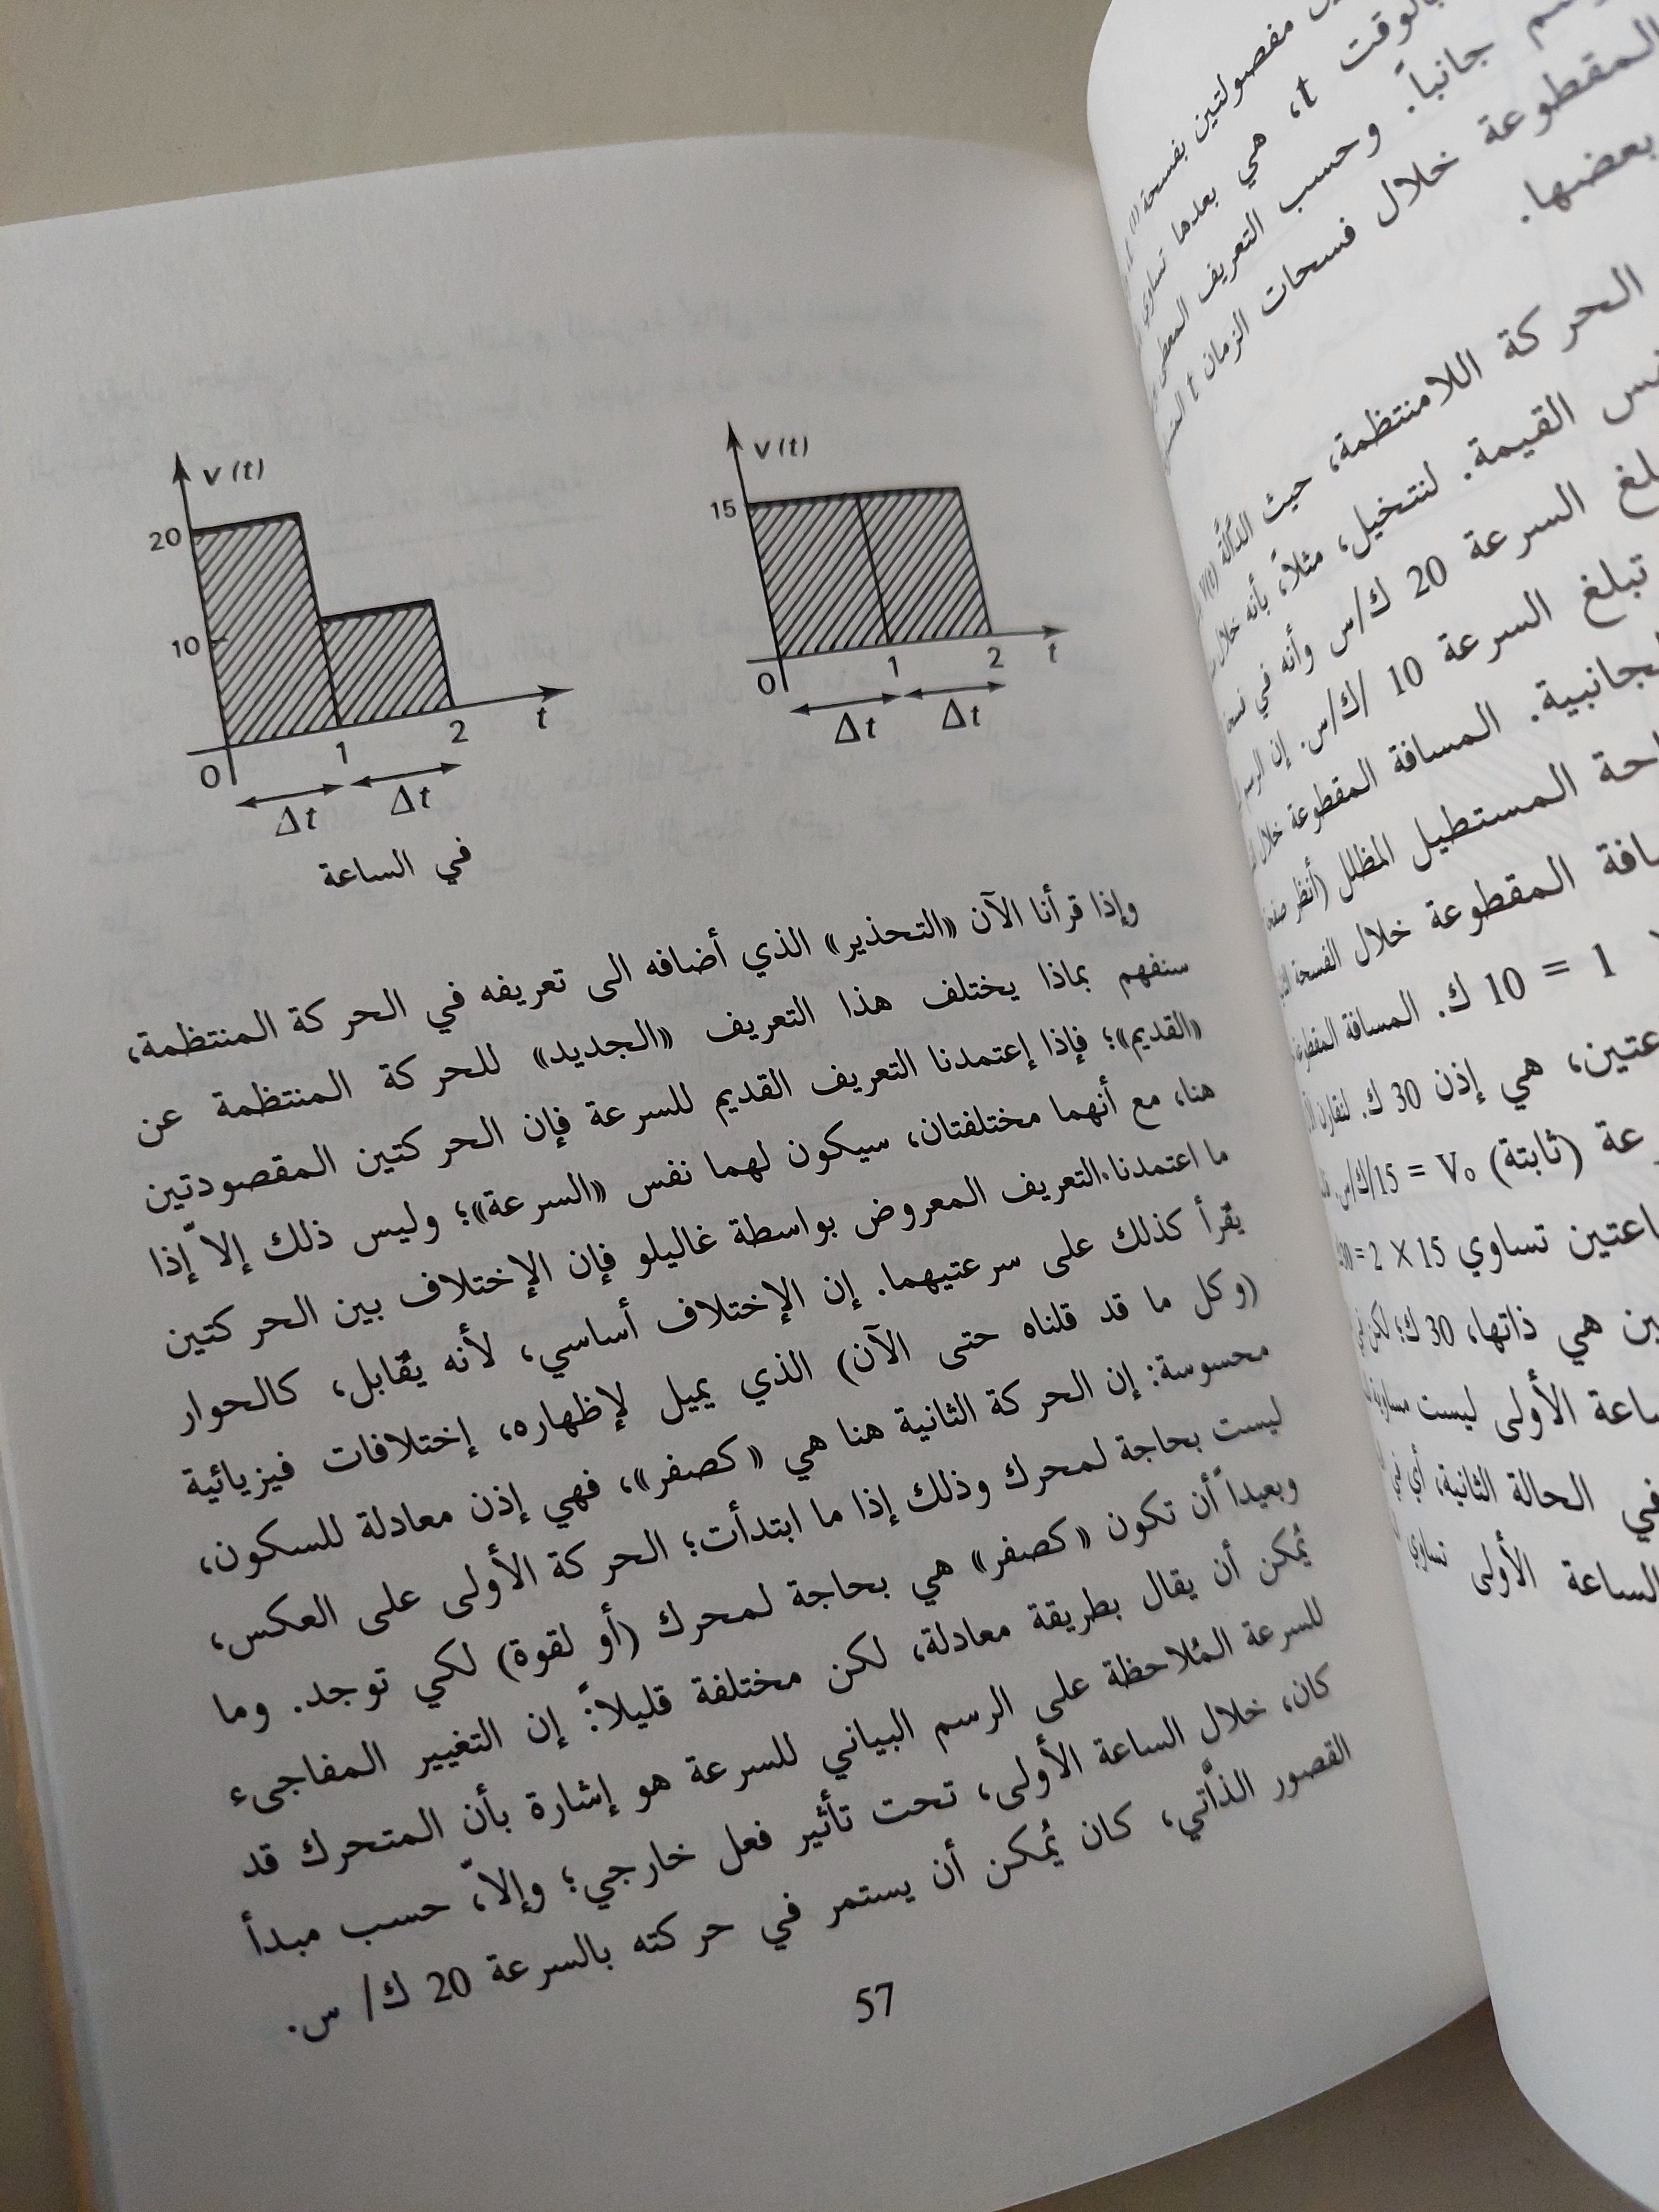 v(t)
20
10
0
1
2
t
Δt
Δt
في الساعة
v(t)
15
0
1
2
t
Δt
Δt
وإذا قرأنا الآن «التحذير» الذي أضافه الى تعريفه في الحركة المنتظمة،
سنفهم بماذا يختلف هذا التعريف «الجديد» للحركة المنتظمة عن
«القديم»؛ فإذا إعتمدنا التعريف القديم للسرعة فإن الحركتين المقصودتين
هنا، مع أنهما مختلفتان، سيكون لهما نفس «السرعة»؛ وليس ذلك إلاّ إذا
ما اعتمدنا التعريف المعروض بواسطة غاليلو فإن الإختلاف بين الحركتين
يُقرأ كذلك على سرعتيهما. إن الإختلاف أساسي، لأنه يُقابل، كالحوار
(وكل ما قد قلناه حتى الآن) الذي يميل لإظهاره، إختلافات فيزيائية
محسوسة: إن الحركة الثانية هنا هي «كصفر»، فهي إذن معادلة للسكون،
ليست بحاجة لمحرك وذلك إذا ما ابتدأت؛ الحركة الأولى على العكس،
وبعيداً أن تكون «كصفر» هي بحاجة لمحرك (أو لقوة) لكي توجد. وما
يُمكن أن يقال بطريقة معادلة، لكن مختلفة قليلاً: إن التغيير المفاجىء
للسرعة المُلاحظة على الرسم البياني للسرعة هو إشارة بأن المتحرك قد
كان، خلال الساعة الأولى، تحت تأثير فعل خارجي؛ وإلاّ، حسب مبدأ
القصور الذّاتي، كان يُمكن أن يستمر في حركته بالسرعة 20 ك/ س.
57
مفصولتين بفسحة
بالوقت t، هي بعدها تساوي
جانباً. وحسب التعريف المعطى
المقطوعة خلال فسحات الزمان t
بعضها.
الحركة اللامنتظمة، حيث الدّالّة V(t)
القيمة. لنتخيل، مثلاً، بأنه خلال
السرعة 20 ك/س وأنه في
تبلغ السرعة 10 /ك/س. إن الرسم
المسافة المقطوعة خلال
المستطيل المظلل (أنظر صفحة
المقطوعة خلال الفسحة
1 = 10 ك. المسافة المقطوعة
هي إذن 30 ك. لنقارن
(ثابتة) V₀ = 15/ك/س.
تساوي 15 × 2 = 30
هي ذاتها، 30 ك؛ لكن في
الأولى ليست مساوية
في الحالة الثانية، أي في
الساعة الأولى تساوي